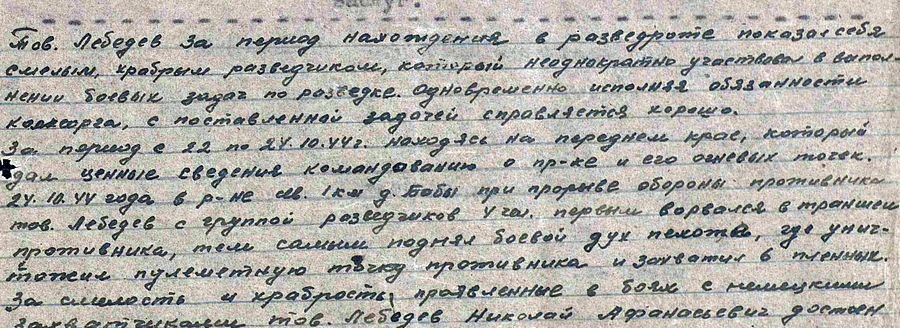 заслуг.
Тов. Лебедев за период нахождения в разведроте показал себя
смелым, храбрым разведчиком, который неоднократно участвовал в выпол-
нении боевых задач по разведке. Одновременно исполняя обязанности
, с поставленной задачей справляется хорошо.
За период с 22 по 24.10.44 г. находясь на переднем крае, который
дал ценные сведения командованию о пр-ке и его огневых точек.
24.10.44 года в р-не 1 км д. Бабы при прорыве обороны противника
тов. Лебедев с группой разведчиков 4 чел. первым ворвался в траншеи
противника, тем самым поднял боевой дух пехоты, где унич-
тожил пулеметную точку противника и захватил 6 пленных.
За смелость и храбрость, проявленные в боях с немецкими
захватчиками тов. Лебедев Николай Афанасьевич достоен